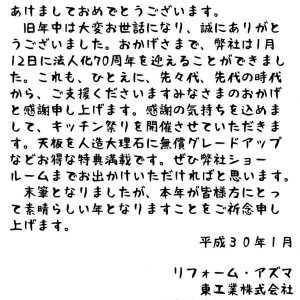 あけましておめでとうございます。
旧年中は大変お世話になり、誠にありがと
うございました。おかげさまで、弊社は1月
12日に法人化70周年を迎えることができまし
た。これも、ひとえに、先々代、先代の時代
から、ご支援くださいますみなさまのおかげ
と感謝申し上げます。感謝の気持ちを込めま
して、キッチン祭りを開催させていただきま
す。天板を人造大理石に無償グレードアップ
などお得な特典満載です。ぜひ弊社ショー
ルームまでお出かけいただければと思います。
末筆となりましたが、本年が皆様方にとっ
て素晴らしい年となりますことをご祈念申し
上げます。
平成30年1月
リフォーム・アズマ
東工業株式会社